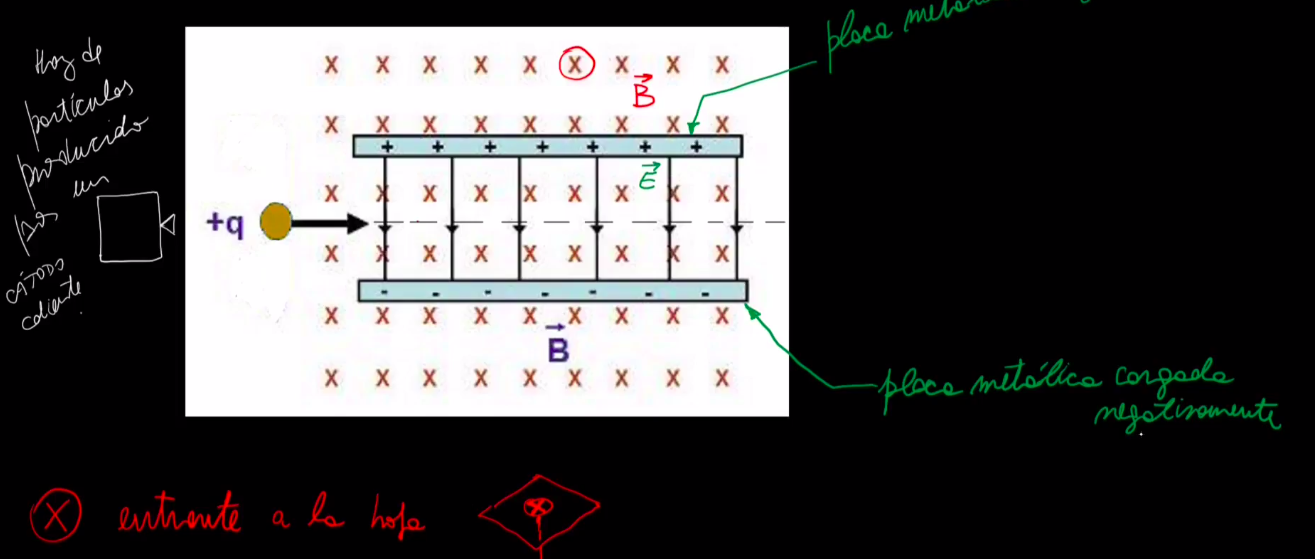 placa metál
Haz de
partículas
producido
por un
cátodo
caliente.
X X X X X X X X X
B
X X X X X X X X X
+ + + + + + +
E
X X X X X X X X X
+q
X X X X X X X X X
- - - - - - -
X X X X X X X X X
B
X X X X X X X X X
placa metálica cargada
negativamente
X entrante a la hoja X